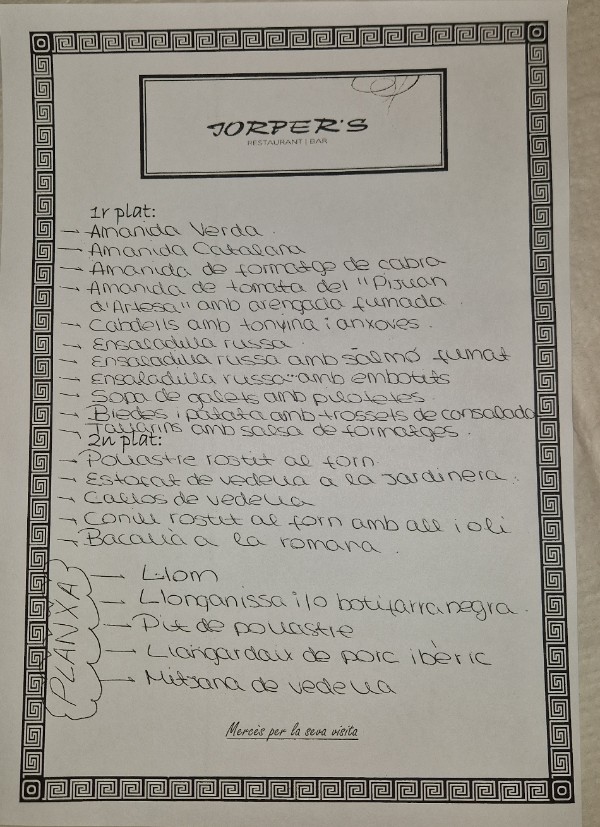 JORPER'S
RESTAURANT | BAR
1r plat:
→ Amanida Verda.
→ Amanida Catalana
→ Amanida de formatge de cabra
→ Amanida de tomata del "Pijuan
d'Artesa" amb arengada fumada.
→ Cabdells amb tonyina i anxoves.
→ Ensaladilla russa.
→ Ensaladilla russa amb salmó fumat
→ Ensaladilla russa amb embotits
→ Sopa de galets amb pilotetes.
→ Bledes i patata amb trossets de cansalada
→ Tallarins amb salsa de formatges.
2n plat:
→ Pollastre rostit al forn.
→ Estofat de vedella a la Jardinera.
→ Callos de vedella
→ Conill rostit al forn amb all i oli
→ Bacallà a la romana.
PLANXA
→ Llom
→ Llonganissa i/o botifarra negra.
→ Pit de pollastre
→ Llangardaix de porc ibèric
→ Mitjana de vedella
Mercès per la seva visita